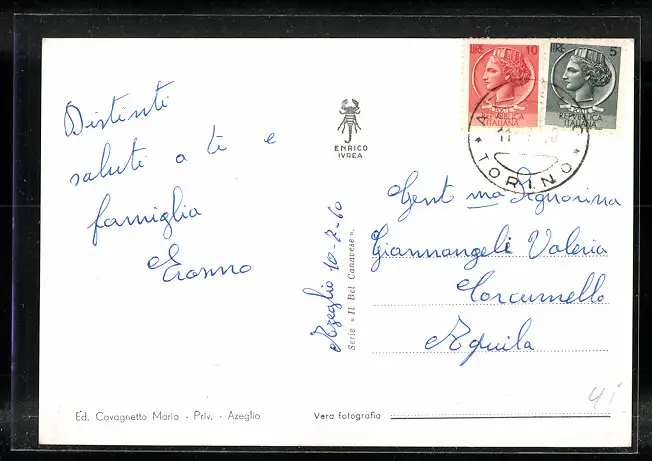 Distinti
saluti a te e
famiglia
Eranno
Ed. Cavagnetto Maria - Priv. - Azeglio
ENRICO
IVREA
Azeglio 10-2-60
Serie « Il Bel Canavese ».
Vera fotografia
LIRE 10
POSTE
REPUBBLICA
ITALIANA
LIRE 5
REPUBBLICA
ITALIANA
* TORINO *
Gent ma Signorina
Giannangeli Valeria
Corcumello
Aquila
41